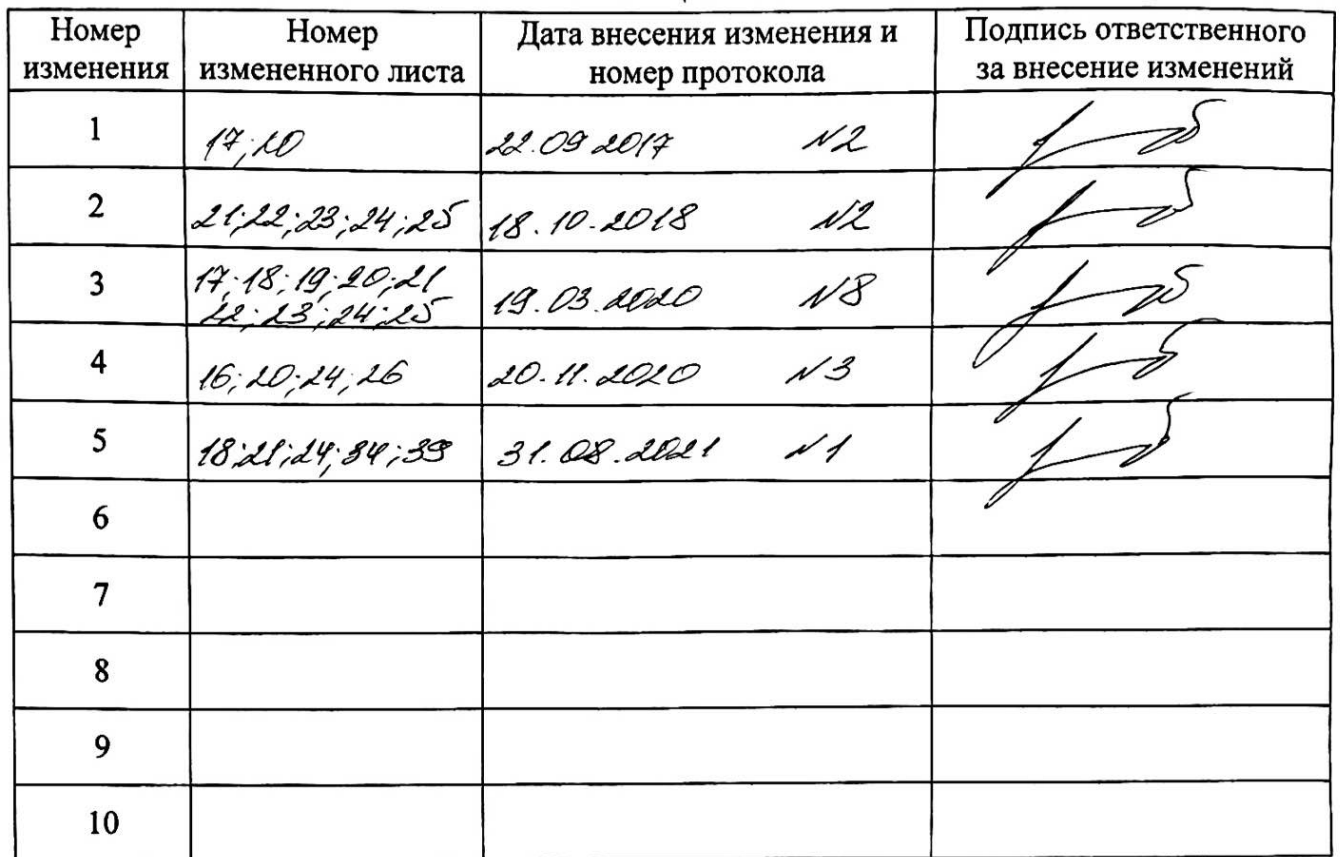 Номер изменения | Номер измененного листа | Дата внесения изменения и номер протокола | Подпись ответственного за внесение изменений
1 | 17; 20 | 22.09.2017 №2
2 | 21; 22; 23; 24; 25 | 18.10.2018 №2
3 | 17; 18; 19; 20; 21 22; 23; 24; 25 | 19.03.2020 №8
4 | 16; 20; 24; 26 | 20.11.2020 №3
5 | 18; 21; 24; 34; 39 | 31.08.2021 №1
6
7
8
9
10